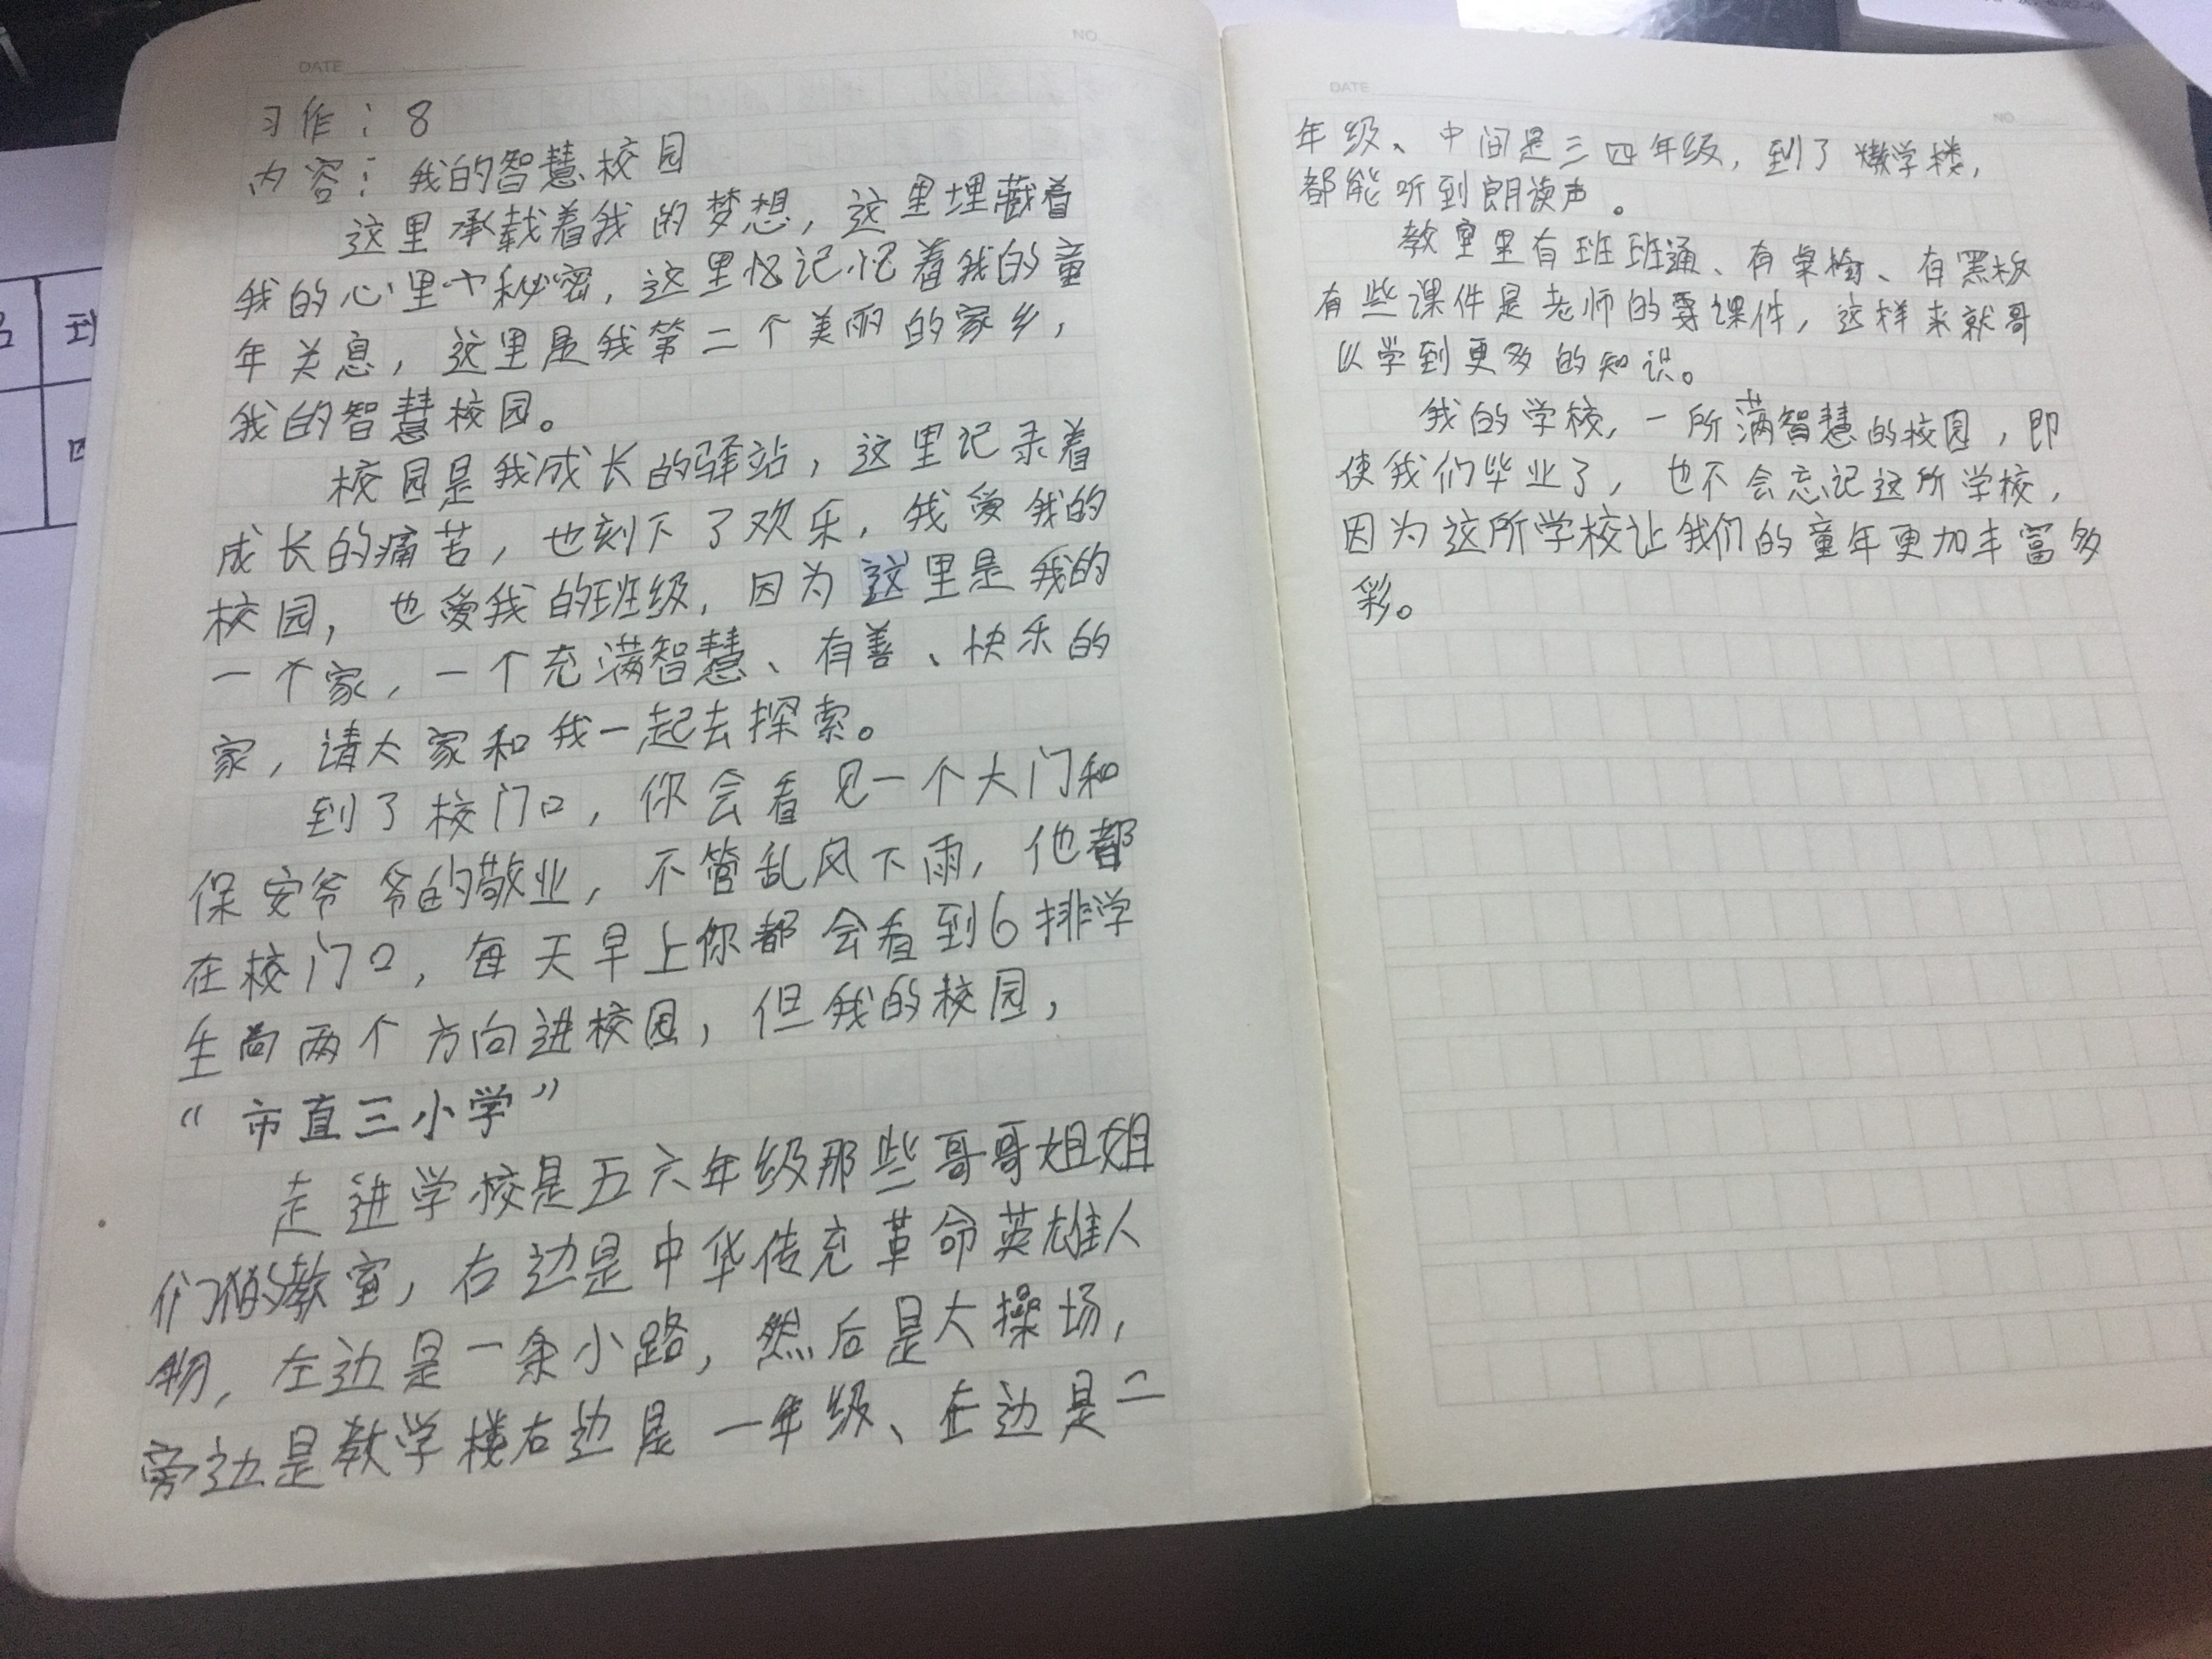 DATE
NO
习作：8
内容：我的智慧校园
这里承载着我的梦想，这里埋藏着
我的心里小秘密，这里忆记忆着我的童
年关息，这里是我第二个美丽的家乡，
我的智慧校园。
校园是我成长的驿站，这里记录着
成长的痛苦，也刻下了欢乐，我爱我的
校园，也爱我的班级，因为这里是我的
一个家，一个充满智慧、有善、快乐的
家，请大家和我一起去探索。
到了校门口，你会看见一个大门和
保安爷爷的敬业，不管乱风下雨，他都
在校门口，每天早上你都会看到6排学
生向两个方向进校园，但我的校园，
“市直三小学”
走进学校是五六年级那些哥哥姐姐
们的教室，右边是中华传充革命英雄人
物，左边是一条小路，然后是大操场，
旁边是教学楼右边是一年级、左边是二
DATE
NO
年级、中间是三四年级，到了教学楼，
都能听到朗读声。
教室里有班班通、有桌椅、有黑板
有些课件是老师的课件，这样来就哥
以学到更多的知识。
我的学校，一所满智慧的校园，即
使我们毕业了，也不会忘记这所学校，
因为这所学校让我们的童年更加丰富多
彩。